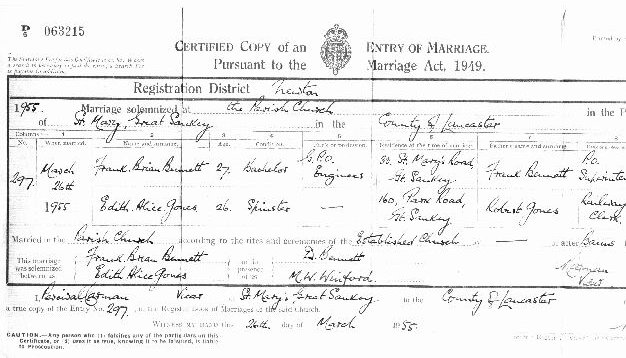 P/6 063215
CERTIFIED COPY of an ENTRY OF MARRIAGE.
Pursuant to the Marriage Act, 1949.
Registration District Newton
1955. Marriage solemnized at the Parish Church in the P
of St. Mary, Great Sankey in the County of Lancaster
Columns 1 2 3 4 5 6 7
No. When married. Name and surname. Age. Condition. Rank or profession. Residence at the time of marriage. Father's name and surname.
297. March 26th 1955
Frank Brian Bennett 27. Bachelor G.P.O. Engineer 30, St. Mary's Road, Gt. Sankey Frank Bennett P.O.
Edith Alice Jones 26. Spinster — 160, Park Road, Gt. Sankey Robert Jones Railway Clerk
Married in the Parish Church according to the rites and ceremonies of the Established Church — after Banns
This marriage was solemnized between us
Frank Brian Bennett
Edith Alice Jones
in the presence of us
D. Bennett
M.W. Winford.
Vicar
I, Vicar of St. Mary's Great Sankey in the County of Lancaster
a true copy of the Entry No. 297, in the Register of Marriages of the said Church.
WITNESS MY HAND this 26th day of March 1955.
CAUTION.—Any person who (1) falsifies any of the particulars on this
Certificate, or (2) uses it as true, knowing it to be falsified, is liable
to Prosecution.